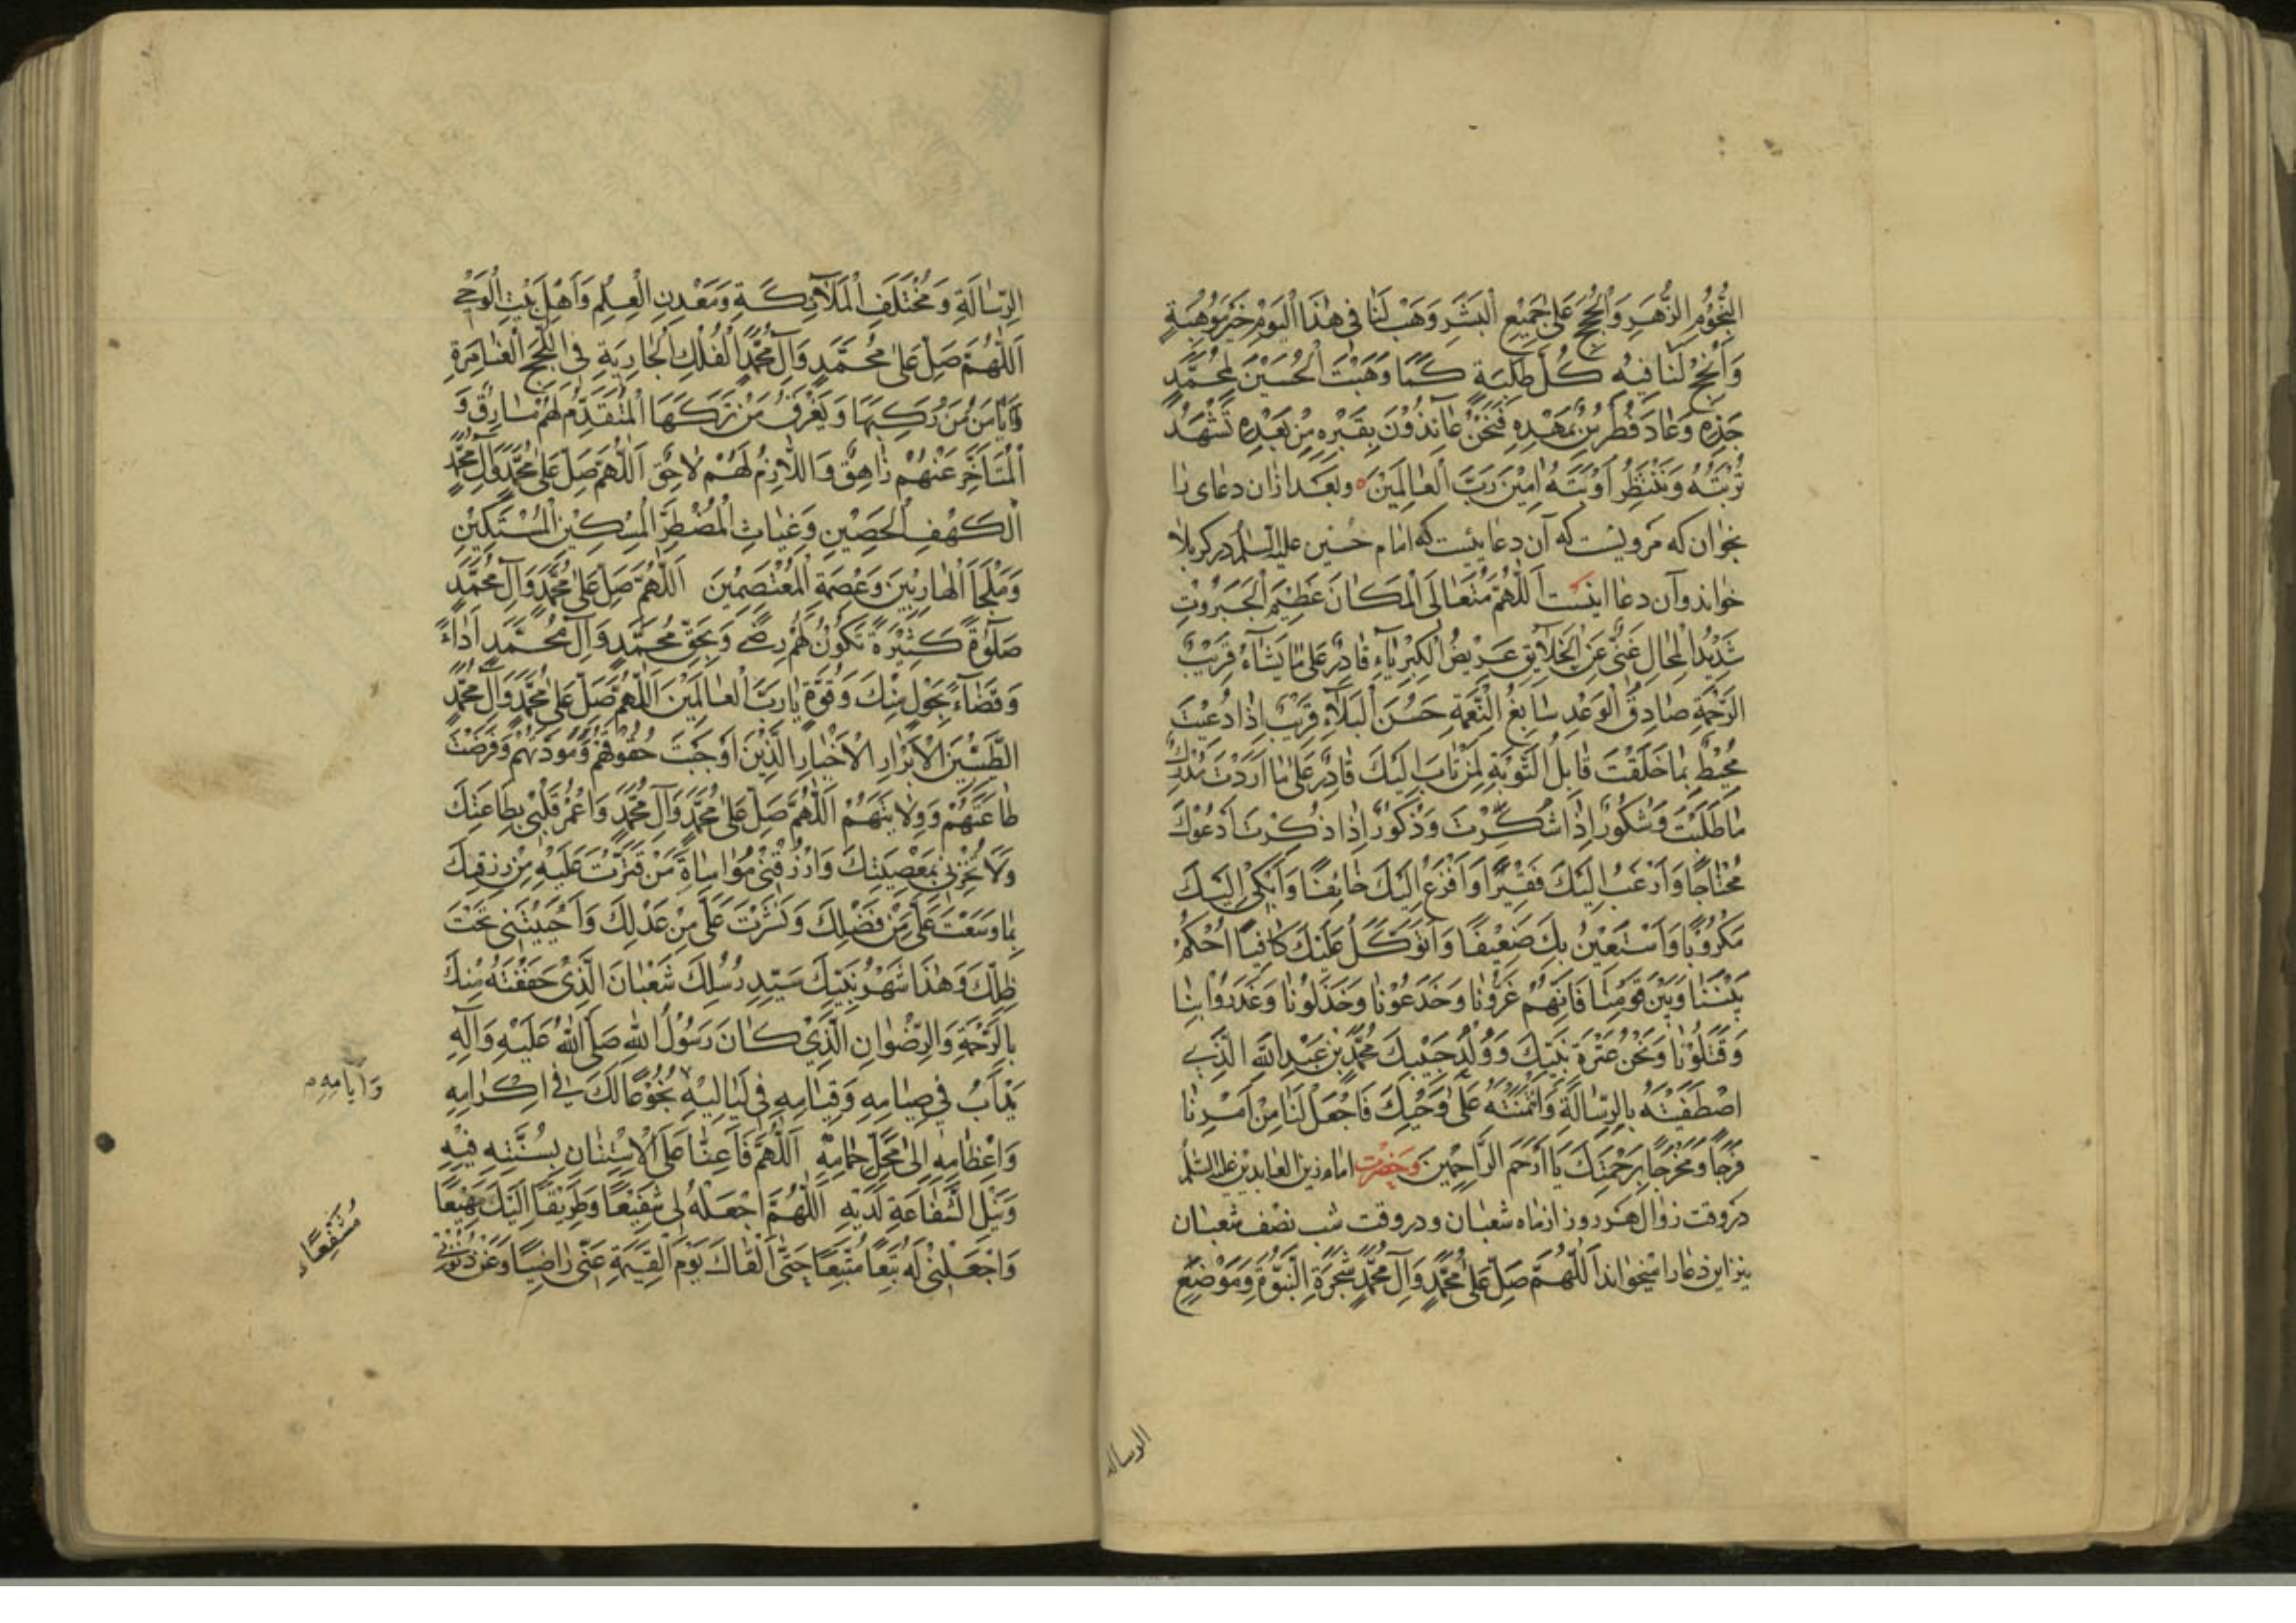 النُّجُوُمِ الزُّهَرِ وَالْحُجَجِ عَلىٰ جَمِيْعِ الْبَشَرِ وَهَبْ لَنَا فى هٰذَا الْيَوْمِ خَيْرَ مَوْهِبَةٍ
وَأَنْجِحْ لَنَا فِيْهِ كُلَّ طَلِبَةٍ كَمَا وَهَبْتَ الْحُسَيْنَ لِمُحَمَّدٍ
جَدِّهِ وَعَاذَ فُطْرُسُ بِمَهْدِهِ فَنَحْنُ عَائِذُوْنَ بِقَبْرِهِ مِنْ بَعْدِهِ نَشْهَدُ
تُرْبَتَهُ وَنَنْتَظِرُ اَوْبَتَهُ اٰمِيْنَ رَبَّ الْعٰالَمِيْنَ ه وبعد ازان دعاى را
بخوان كه مرويست كه آن دعا يیست كه امام حسين عليه السلم در كربلا
خواند وآن دعا اينست اَللّٰهُمَّ مُتَعٰالَى الْمَكٰانِ عَظِيْمَ الْجَبَرُوْتِ
شَدِيْدُ الْمِحٰالِ غَنِىٌّ عَنِ الْخَلاٰيِقِ عَرِيْضُ الْكِبْرِيٰاءِ قٰادِرٌ عَلىٰ مٰا يَشٰاءُ قَرِيْبُ
الرَّحْمَةِ صٰادِقُ الْوَعْدِ سٰابِغُ النِّعْمَةِ حَسَنُ الْبَلٰاءِ قَرِيْبٌ اِذٰا دُعِيْتَ
مُحِيْطٌ بِمٰا خَلَقْتَ قٰابِلُ التَّوْبَةِ لِمَنْ تٰابَ اِلَيْكَ قٰادِرٌ عَلىٰ مٰا اَرَدْتَ مُدْرِكٌ
مٰا طَلَبْتَ وَشَكُوْرٌ اِذٰا شُكِرْتَ وَذَكُوْرٌ اِذٰا ذُكِرْتَ اَدْعُوْكَ
مُحْتٰاجًا وَاَرْغَبُ اِلَيْكَ فَقِيْرًا وَاَفْزَعُ اِلَيْكَ خٰائِفًا وَاَبْكِى اِلَيْكَ
مَكْرُوْبًا وَاَسْتَعِيْنُ بِكَ ضَعِيْفًا وَاَتَوَكَّلُ عَلَيْكَ كٰافِيًا اُحْكُمْ
بَيْنَنٰا وَبَيْنَ قَوْمِنٰا فَاِنَّهُمْ غَرُّوْنٰا وَخَدَعُوْنٰا وَخَذَلُوْنٰا وَغَدَرُوْا بِنٰا
وَقَتَلُوْنٰا وَنَحْنُ عِتْرَةُ نَبِيِّكَ وَوُلْدُ حَبِيْبِكَ مُحَمَّدِ بْنِ عَبْدِ اللّٰهِ الَّذِى
اصْطَفَيْتَهُ بِالرِّسٰالَةِ وَائْتَمَنْتَهُ عَلىٰ وَحْيِكَ فَاجْعَلْ لَنٰا مِنْ اَمْرِنٰا
فَرَجًا وَمَخْرَجًا بِرَحْمَتِكَ يٰا اَرْحَمَ الرَّاحِمِيْنَ وحضرت امام زين العابدين عليه السلم
در وقت زوال هر روز از ماه شعبان و در وقت شب نصف شعبان
نيز اين دعا را ميخواند اَللّٰهُمَّ صَلِّ عَلىٰ مُحَمَّدٍ وَآلِ مُحَمَّدٍ شَجَرَةِ النُّبُوَّةِ وَمَوْضِعِ
الرساله
الرِّسٰالَةِ وَمُخْتَلَفِ الْمَلاٰئِكَةِ وَمَعْدِنِ الْعِلْمِ وَاَهْلِ بَيْتِ الْوَحْىِ
اَللّٰهُمَّ صَلِّ عَلىٰ مُحَمَّدٍ وَآلِ مُحَمَّدٍ الْفُلْكِ الْجٰارِيَةِ فِى اللُّجَجِ الْغٰامِرَةِ
يَأْمَنُ مَنْ رَكِبَهٰا وَيَغْرَقُ مَنْ تَرَكَهَا الْمُتَقَدِّمُ لَهُمْ مٰارِقٌ وَ
الْمُتَاَخِّرُ عَنْهُمْ زٰاهِقٌ وَاللاّٰزِمُ لَهُمْ لاٰحِقٌ اَللّٰهُمَّ صَلِّ عَلىٰ مُحَمَّدٍ وَآلِ مُحَمَّدٍ
الْكَهْفِ الْحَصِيْنِ وَغِيٰاثِ الْمُضْطَرِّ الْمِسْكِيْنِ الْمُسْتَكِيْنِ
وَمَلْجَأِ الْهٰارِبِيْنَ وَعِصْمَةِ الْمُعْتَصِمِيْنَ اَللّٰهُمَّ صَلِّ عَلىٰ مُحَمَّدٍ وَآلِ مُحَمَّدٍ
صَلٰوةً كَثِيْرَةً تَكُوْنُ لَهُمْ رِضًى وَبِحَقِّ مُحَمَّدٍ وَآلِ مُحَمَّدٍ اَدٰاءً
وَقَضٰاءً بِحَوْلٍ مِنْكَ وَقُوَّةٍ يٰا رَبَّ الْعٰالَمِيْنَ اَللّٰهُمَّ صَلِّ عَلىٰ مُحَمَّدٍ وَآلِ مُحَمَّدٍ
الطَّيِّبِيْنَ الْاَبْرٰارِ الْاَخْيٰارِ الَّذِيْنَ اَوْجَبْتَ حُقُوْقَهُمْ وَمَوَدَّتَهُمْ وَفَرَضْتَ
طٰاعَتَهُمْ وَوِلاٰيَتَهُمْ اَللّٰهُمَّ صَلِّ عَلىٰ مُحَمَّدٍ وَآلِ مُحَمَّدٍ وَاعْمُرْ قَلْبِى بِطٰاعَتِكَ
وَلاٰ تُخْزِنِى بِمَعْصِيَتِكَ وَارْزُقْنِىْ مُوٰاسٰاةَ مَنْ قَتَّرْتَ عَلَيْهِ مِنْ رِزْقِكَ
بِمٰا وَسَّعْتَ عَلَىَّ مِنْ فَضْلِكَ وَنَشَرْتَ عَلَىَّ مِنْ عَدْلِكَ وَاَحْيَيْتَنِى تَحْتَ
ظِلِّكَ وَهٰذَا شَهْرُ نَبِيِّكَ سَيِّدِ رُسُلِكَ شَعْبٰانَ الَّذِىْ حَفَفْتَهُ مِنْكَ
بِالرَّحْمَةِ وَالرِّضْوٰانِ الَّذِيْ كٰانَ رَسُوْلُ اللّٰهِ صَلَّى اللّٰهُ عَلَيْهِ وَآلِهِ
يَدْأَبُ فِي صِيٰامِهِ وَقِيٰامِهِ فِى لَيٰالِيْهِ بُخُوْعًا لَكَ فِى اِكْرٰامِهِ
وَاَيّٰامِهِ م
وَاِعْظٰامِهِ اِلىٰ مَحَلِّ حِمٰامِهِ اَللّٰهُمَّ فَاَعِنّٰا عَلَى الْاِسْتِنٰانِ بِسُنَّتِهِ فِيْهِ
وَنَيْلِ الشَّفٰاعَةِ لَدَيْهِ اَللّٰهُمَّ اجْعَلْهُ لِى شَفِيْعًا وَطَرِيْقًا اِلَيْكَ مَهْيَعًا
مُشَفَّعًا
وَاجْعَلْنِىْ لَهُ تَبَعًا مُتَّبِعًا حَتّٰى اَلْقٰاكَ يَوْمَ الْقِيٰمَةِ عَنِّى رٰاضِيًا وَعَنْ ذُنُوْبِى